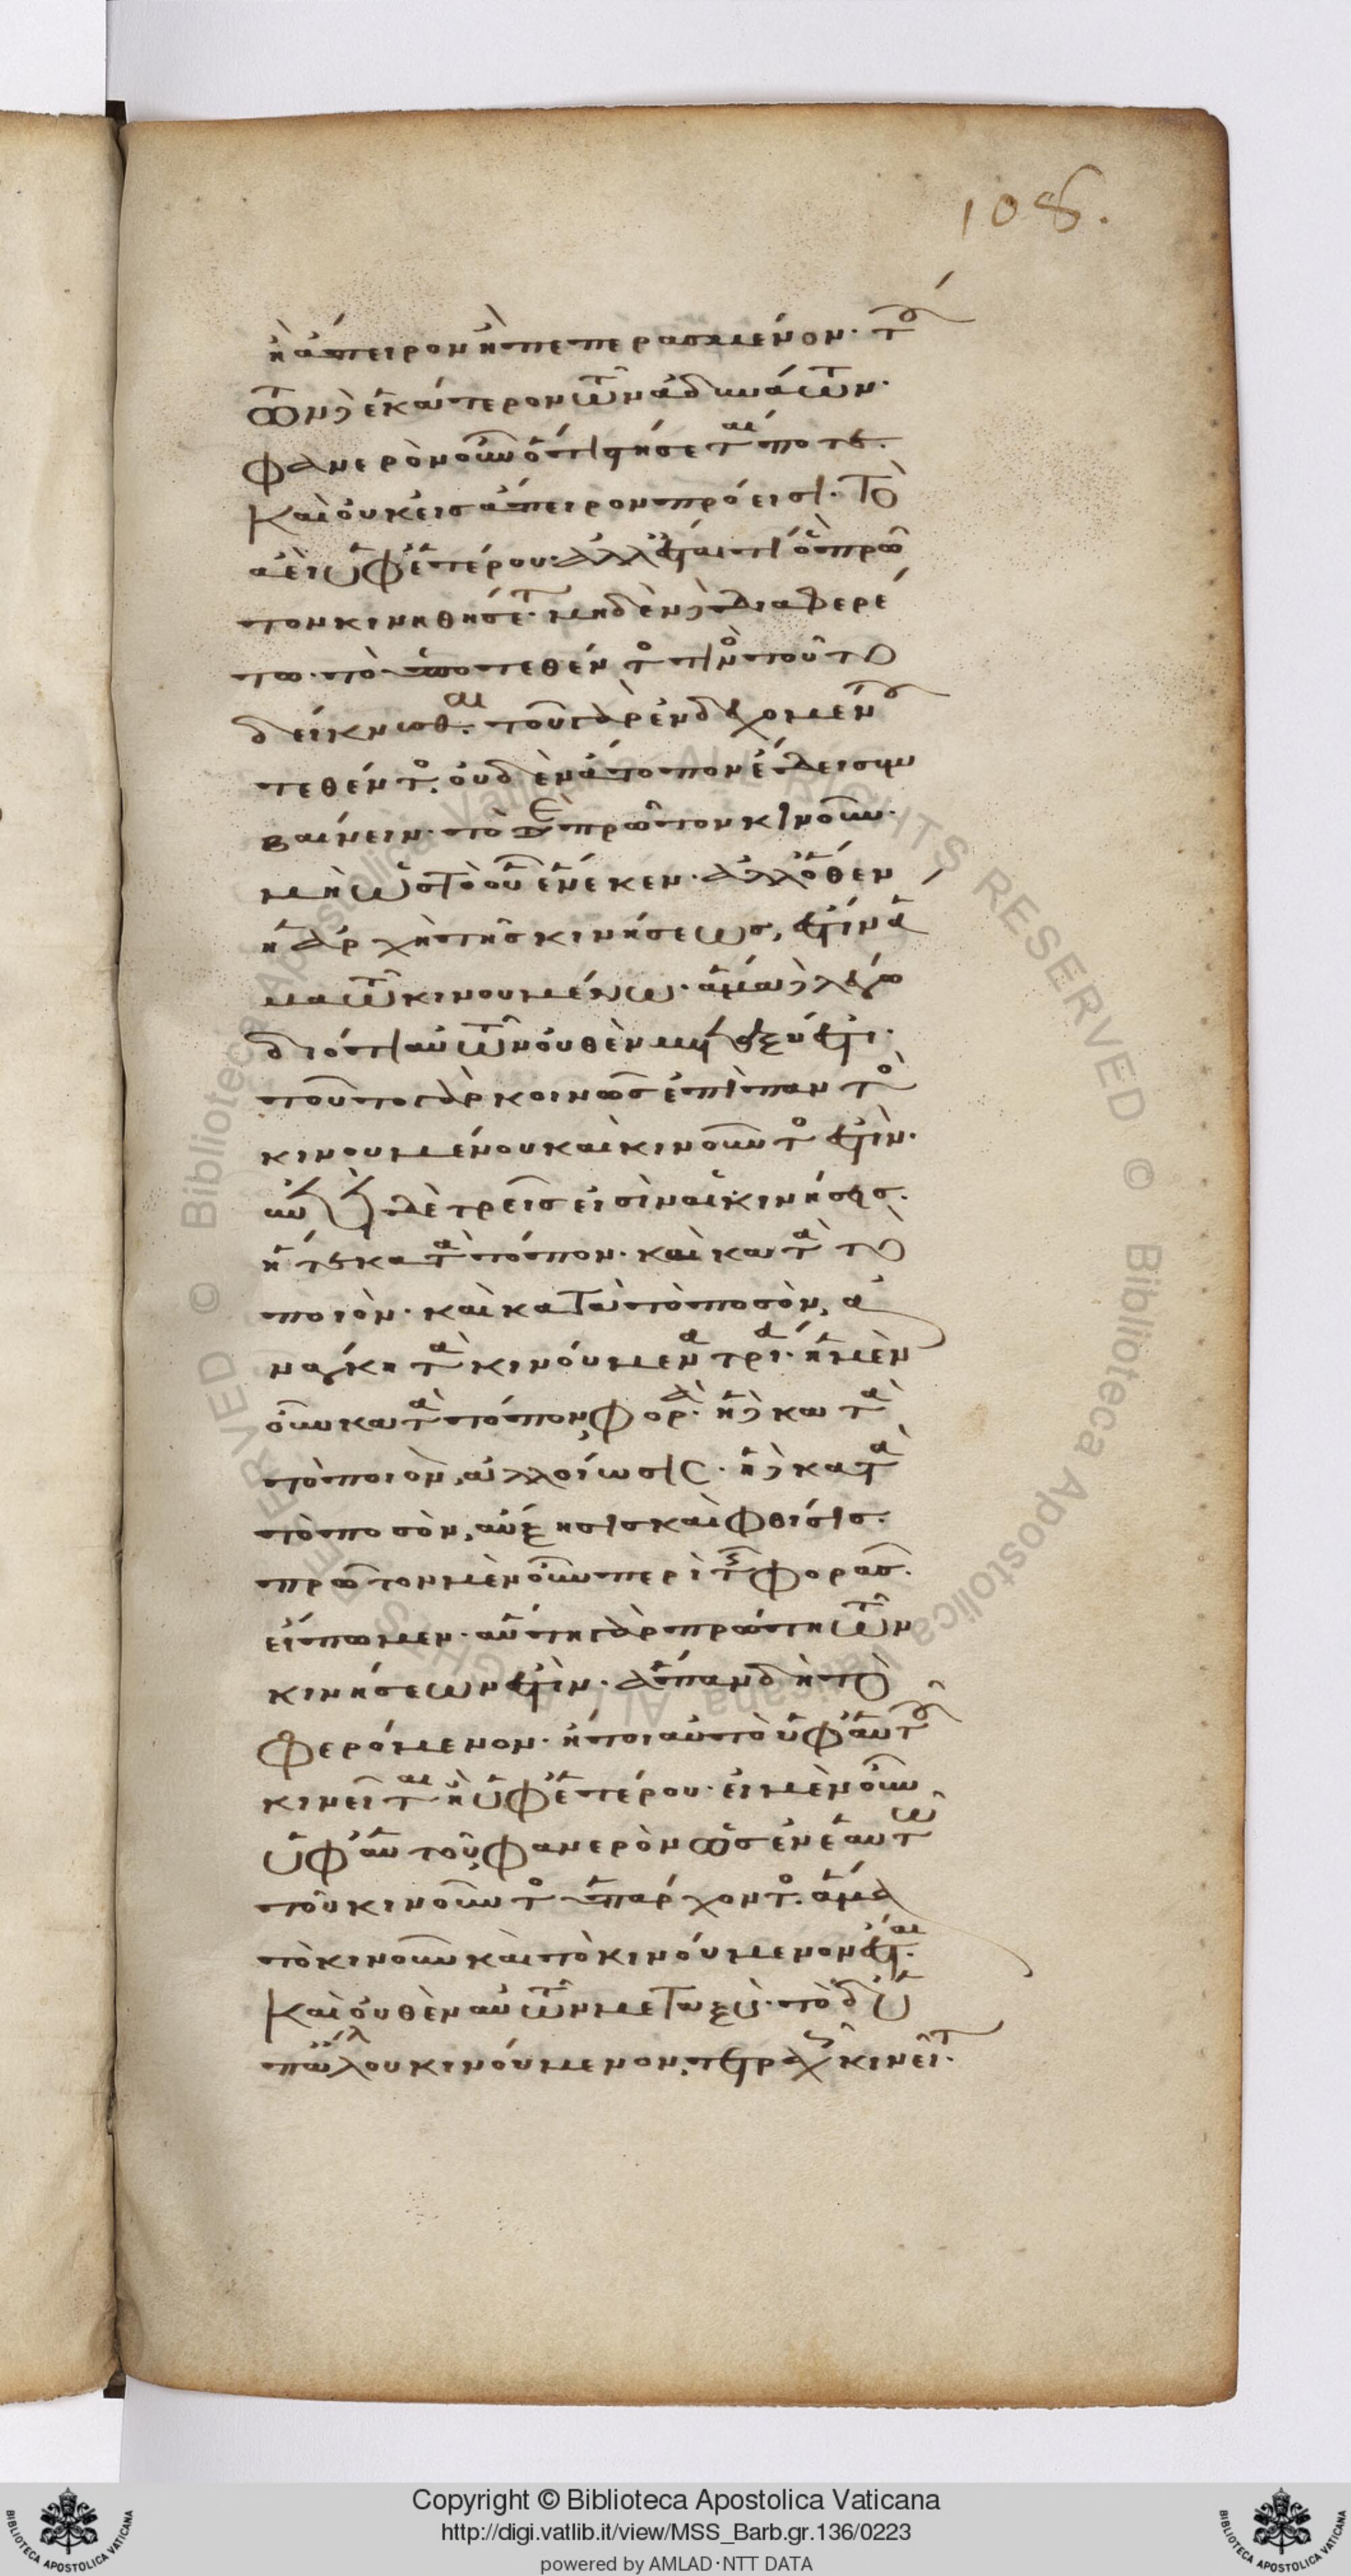 ἢ ἄπειρον ἢ πεπερασμένον· τού
των δ' ἑκάτερον τῶν ἀδυνάτων·
φανερὸν οὖν ὅτι στήσεταί ποτε.
καὶ οὐκ εἰς ἄπειρον πρόεισι· τὸ
ἀεὶ ὑφ' ἑτέρου· ἀλλ' ἔσται τι ὃ πρῶ
τον κινηθήσεται· μηδὲν δὲ διαφερέ
τω· τὸ ὑποτεθέντος τινὸς τοῦτο
δείκνυσθαι. τοῦ γὰρ ἐνδεχομένου
τεθέντος. οὐδὲν ἄτοπον ἔδει συμ
βαίνειν· τὸ δὲ πρῶτον κινοῦν·
μὴ ὡς τὸ οὗ ἕνεκεν· ἀλλ' ὅθεν
ἡ ἀρχὴ τῆς κινήσεως, ἐστὶν ἅ
μα τῷ κινουμένῳ. ἅμα δὲ λέγω
διότι αὐτῶν οὐθὲν μεταξύ ἐστι·
τοῦτο γὰρ κοινῶς ἐπὶ παντὸς
κινουμένου καὶ κινοῦντος ἐστὶν·
δὲ τρεῖς εἰσὶν αἱ κινήσεις.
ἥ τε κατὰ τόπον· καὶ κατὰ τὸ
ποιὸν· καὶ κατὰ τὸ ποσὸν, ἀ
νάγκη τὰ κινούμενα τρία· ἡ μὲν
οὖν κατὰ τόπον, φορὰ· ἡ δὲ κατὰ
τὸ ποιὸν, ἀλλοίωσις· ἡ δὲ κατὰ
τὸ ποσὸν, αὔξησις καὶ φθίσις.
πρῶτον μὲν οὖν περὶ τῆς φορᾶς.
εἴπωμεν· αὕτη γὰρ πρώτη τῶν
κινήσεων ἐστὶν· ἅπαν δὴ τὸ
φερόμενον· ἤτοι αὐτὸ ὑφ' αὑτοῦ
κινεῖται ἢ ὑφ' ἑτέρου· εἰ μὲν οὖν
ὑφ' αὑτοῦ, φανερὸν ὡς ἐν ἑαυτῷ
τοῦ κινοῦντος ὑπάρχοντος. ἅμα
τὸ κινοῦν καὶ τὸ κινούμενον ἔσται.
καὶ οὐθὲν αὐτῶν μεταξύ· τὸ δ' ὑ
π' ἄλλου κινούμενον, τετραχῶς κινεῖται.
108.
Copyright © Biblioteca Apostolica Vaticana
http://digi.vatlib.it/view/MSS_Barb.gr.136/0223
powered by AMLAD·NTT DATA